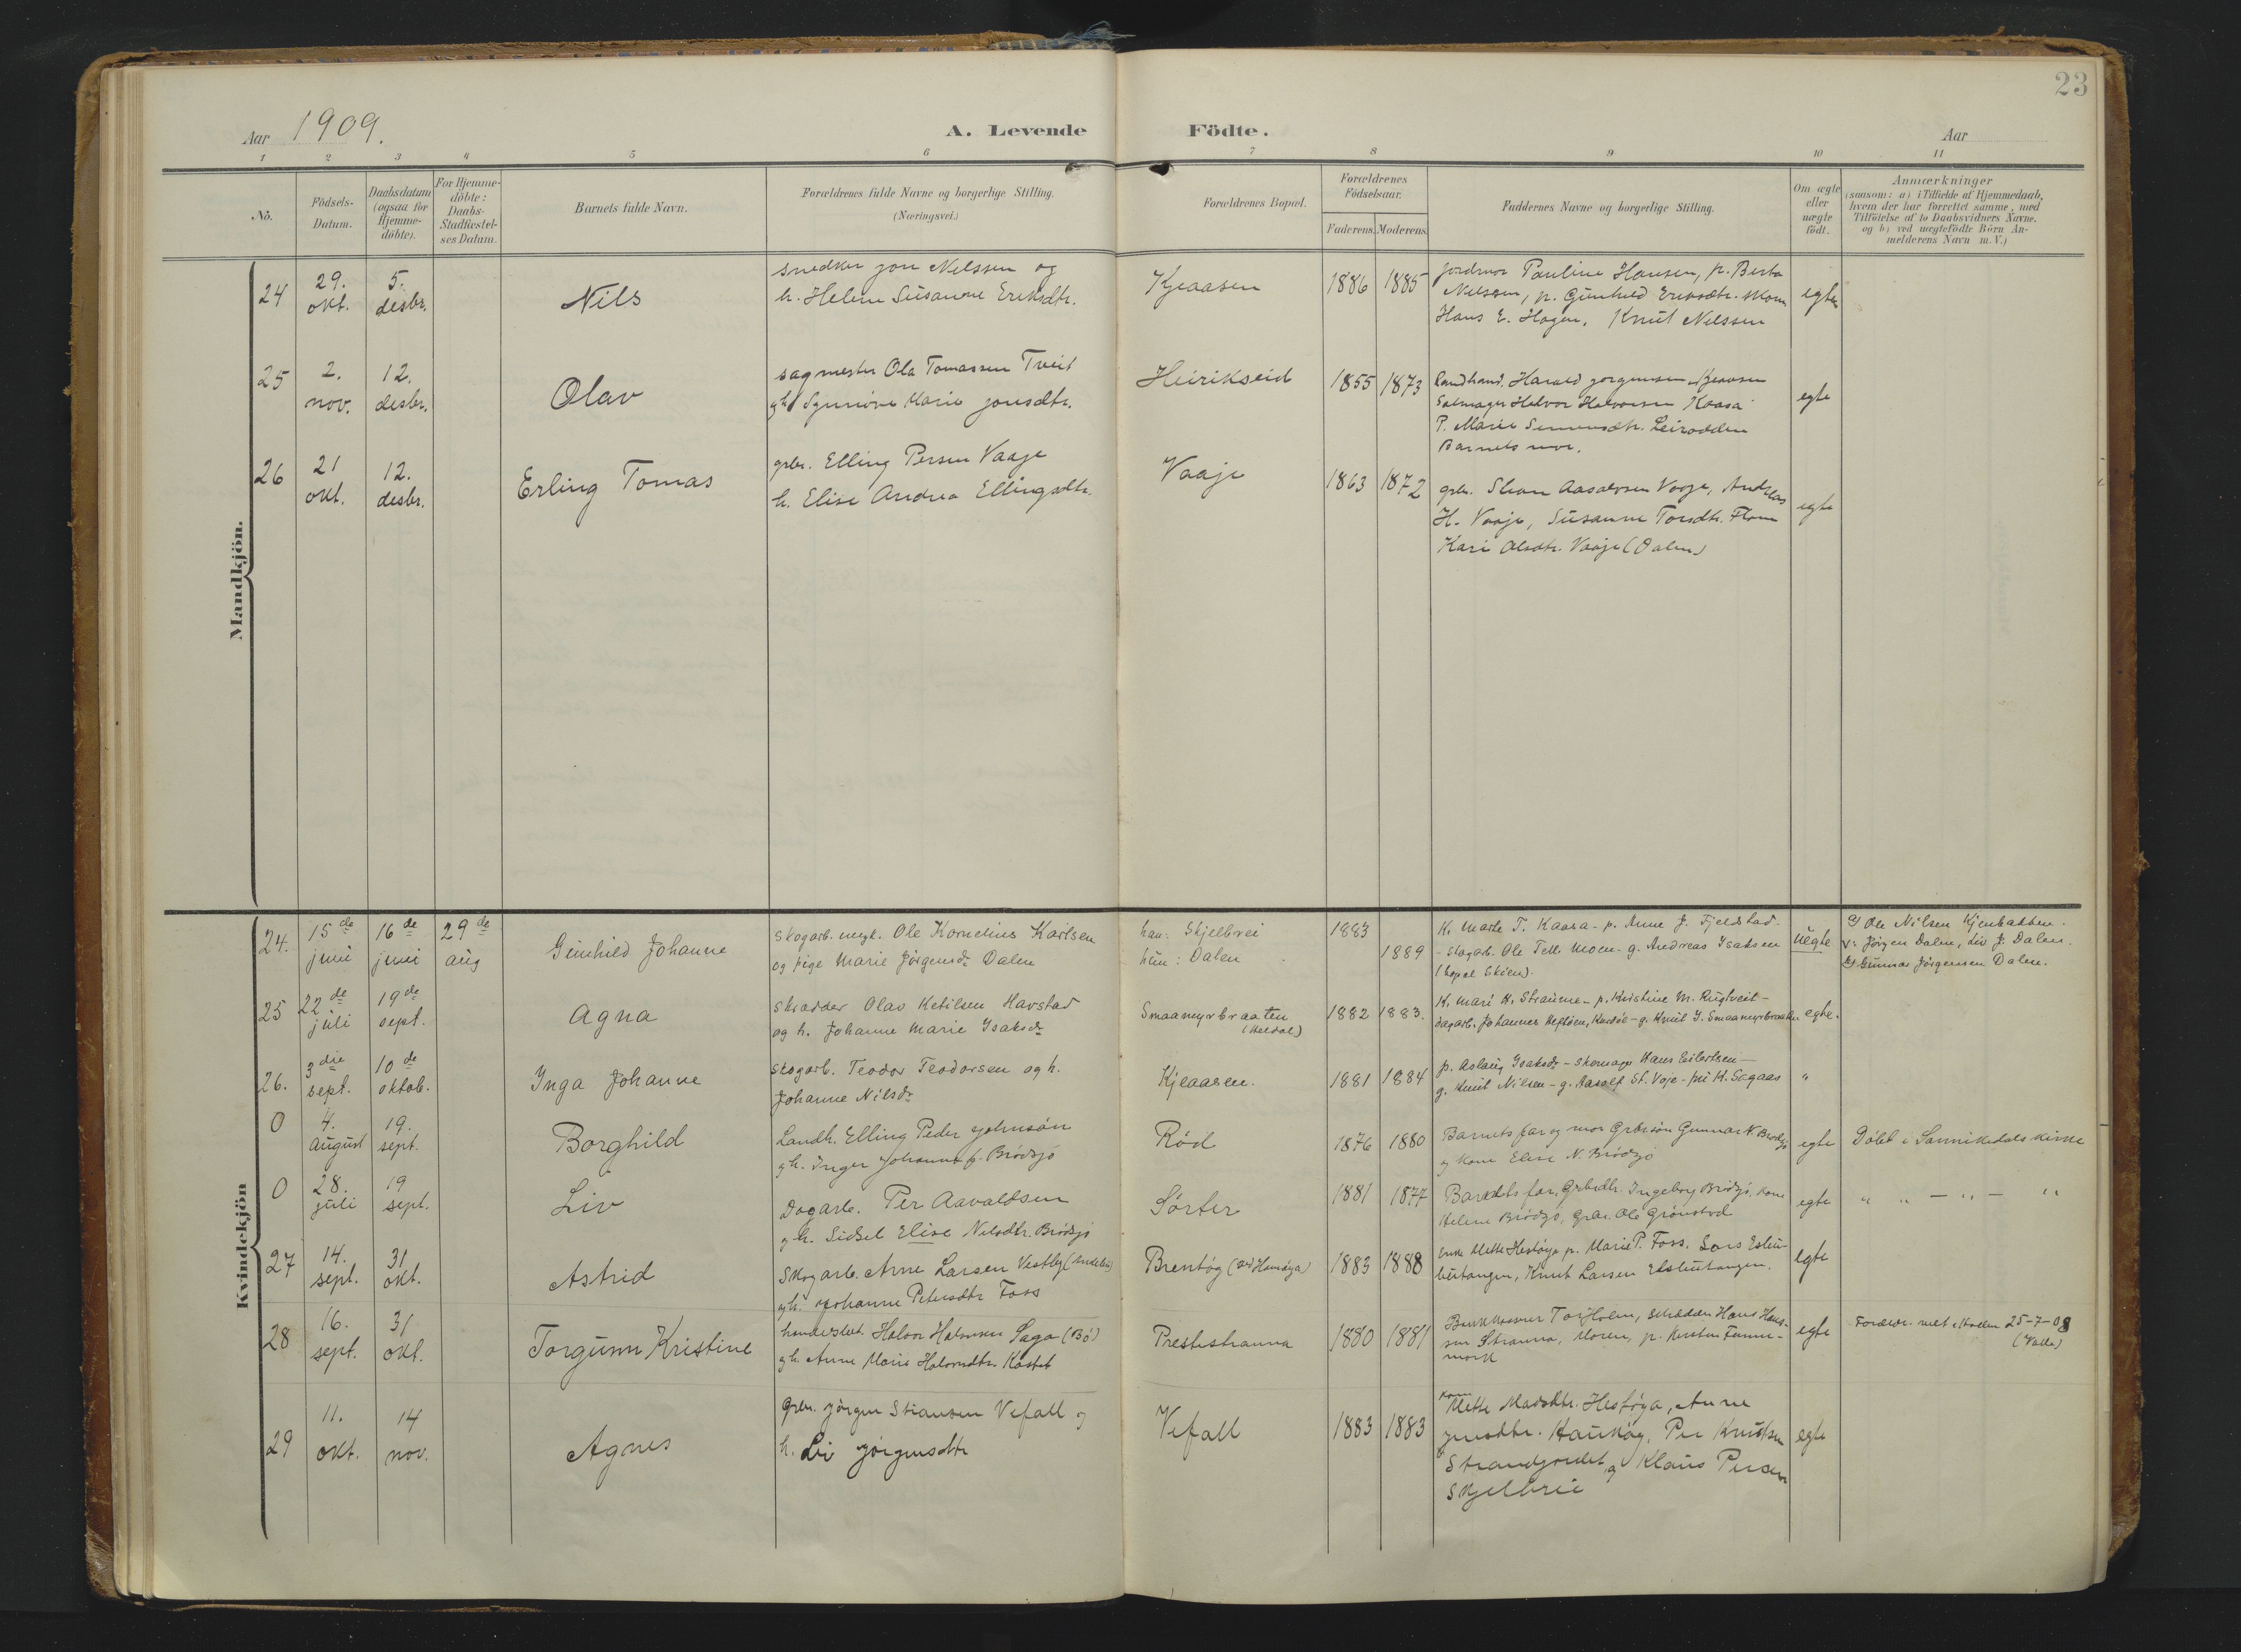 23
Aar 1909.
A. Levende Födte.
Aar
1 2 3 4 5 6 7 8 9 10 11
Nō.
Födsels-
Datum.
Daabsdatum
(ogsaa for
Hjemme-
döbte).
For Hjemme-
döbte:
Daabs-
Stadfæstel-
ses Datum.
Barnets fulde Navn.
Forældrenes fulde Navne og borgerlige Stilling.
(Næringsvei.)
Forældrenes Bopæl.
Forældrenes
Födselsaar.
Faderens. Moderens.
Faddernes Navne og borgerlige Stilling.
Om ægte
eller
uægte
födt.
Anmærkninger
(saasom: a) i Tilfælde af Hjemmedaab,
hvem der har forrettet samme, med
Tilföielse af to Daabsvidners Navne.
og b) ved uægtefödte Börn An-
melderens Navn m. V.)
Mandkjön.
24
29.
okt.
5.
desbr.
Nils
snedker Jon Nelssen og
h. Helene Susanne Eriksdtr.
Kjeaasen
1886 1885
jordmor Pauline Hansen, p. Berta
Nelssen, p. Gunhild Eriksdtr. Moen
Hans E. Hagen, Knut Nelssen
egte
25
2.
nov.
12.
desbr.
Olav
sagmester Ola Tomassen Tveit
og h. Synnöve Marie Jonsdtr.
Heirikseid
1855 1873
landhand. Harald Jorgensen Kjeaasen
Salmager Halvor Halvorsen Kaasa
P. Marie Simonsdtr. Leirodden
Barnets mor.
egte
26
21
okt.
12.
desbr.
Erling Tomas
grbr. Elling Persen Vaaje
h. Elise Andrea Ellingsdtr.
Vaaje
1863 1872
grbr. Stian Aasolvsen Vaaje, Andreas
H. Vaaje, Susanne Torsdtr. Flom
Kari Olsdtr. Vaaje (Dalen)
egte
Kvindekjön
24.
15de
juni
16de
juni
29de
aug
Gunhild Johanne
Skogarb. ungk. Ole Kornelius Karlsen
og pige Marie Jörgensdr Dalen
han: Skjelbrei
hun: Dalen
1883
1889
K. Marte T. Kaasa - p. Anne J. Fjeldstad.
- skogarb. Ole Tell. Moen - g. Andreas Isaksen
(bopæl Skien).
uegte
a) Ole Nilsen Kjenbakken.
V: Jörgen Dalen, Liv J. Dalen.
b) Gunnar Jörgensen Dalen.
25
22de
juli
19de
sept.
Agna
Skrædder Olav Ketilsen Havstad
og h. Johanne Marie Isaksdr
Smaamyrbraaten
(Heldal)
1882 1883.
K. Mari K. Straume - p. Kristine M. Rugtveit -
dagarb. Johannes Heftöen, - g. Knut I. Smaamyrbraaten
egte.
26.
3die
sept.
10de
oktob.
Inga Johanne
Skogarb. Teodor Teodorsen og h.
Johanne Nilsdr
Kjeaasen.
1881 1884
p. Aslaug Isaksdr - Skomager Hans Eilertsen -
g. Knut Nilsen - g. Aasolf St. Voje - K. Sagaas
"
0
4.
August
19.
sept.
Borghild
Landh. Elling Peder Johnsön
og h. Inger Johanne f. Brödsjö
Röd
1876 1880
Barnets far og mor Grbrsön Gunnar N. Brödsjö
og kone Elise N. Brödsjö
egte
Döbt i Sannikedals kirke
0
28.
juli
19
sept.
Liv
Dagarb. Per Aavaldsen
og h. Sidsel Elise Nilsdtr. Brödsjö
Sörter
1881 1877
Barnets far, Grbrdtr. Ingeborg Brödsjö, Kone
Helene Brödsjö, Grbr. Ole Grönstad
egte
" " - " - "
27
14.
sept.
31
okt.
Astrid
Skogarb. Arne Larsen Vestby
og h. Johanne Petersdtr Foss
Brentög
1883 1888
Enke Mette Hestöya p. Marie P. Foss, Lars
Knut Larsen
egte
28
16.
sept.
31
okt.
Torgunn Kristine
handelsbet. Halvor Halvorsen Saga (Bö)
og h. Anne Marie Halvorsdtr. Kastet
Prestestranna
1880 1881
Tor Holm, skrædder Hans Han-
sen Stranna, Moren, p. Kirsten Fanne-
mork
egte
Forældr. viet 25-7-08
(Valle)
29
11.
okt.
14
nov.
Agnes
Grbr. Jörgen Stiansen Vefall og
h. Liv Jörgensdtr
Vefall
1883 1883
Kone
Mette Madsdtr. Hestöya, Anne
Jensdtr. Haukög, Per Knutsen
Strandjordet og Klaus Persen
Skjelbrei
egte